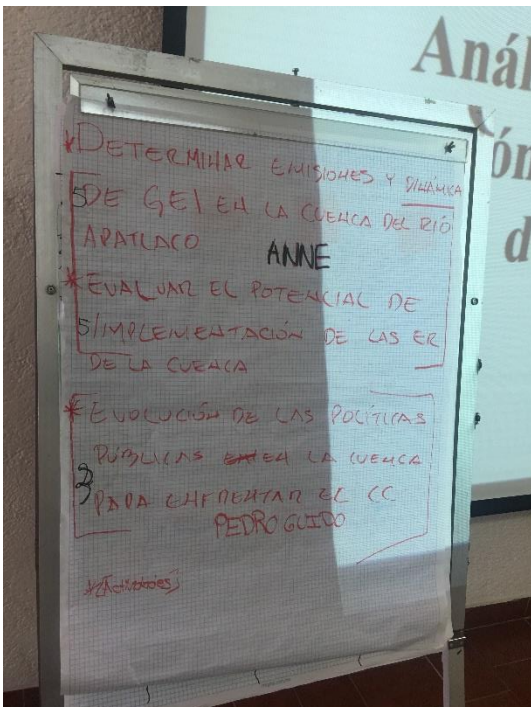 Anál
ón
d
* DETERMINAR EMISIONES Y DINÁMICA
5 DE GEI EN LA CUENCA DEL RIÓ
APATLACO
ANNE
* EVALUAR EL POTENCIAL DE
5 IMPLEMENTACIÓN DE LAS ER
DE LA CUENCA
* EVOLUCIÓN DE LAS POLÍTICAS
PÚBLICAS EN LA CUENCA
PARA ENFRENTAR EL CC
PEDRO GUIDO